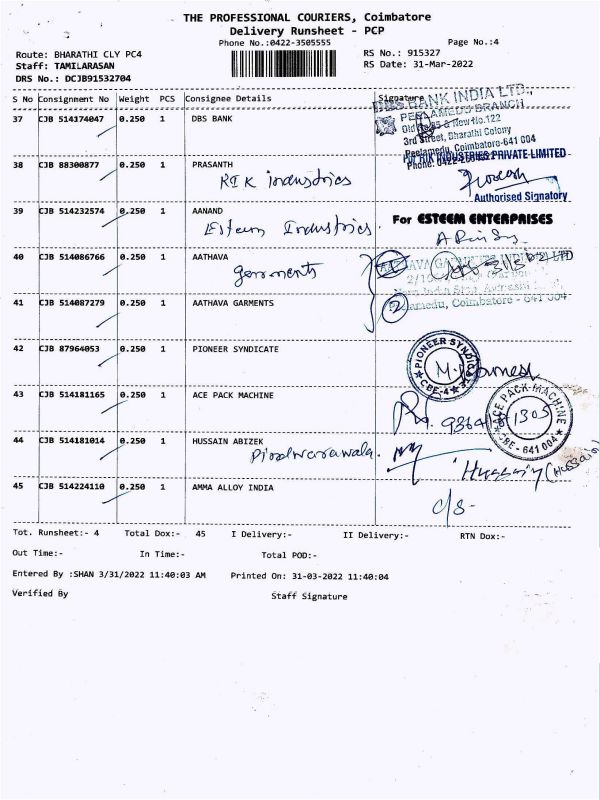 THE PROFESSIONAL COURIERS, Coimbatore
Delivery Runsheet - PCP
Phone No.:0422-3505555
Page No.:4
Route: BHARATHI CLY PC4
RS No.: 915327
Staff: TAMILARASAN
RS Date: 31-Mar-2022
DRS No.: DCJB91532704
S No Consignment No Weight PCS Consignee Details Signature
37 CJB 514174047 0.250 1 DBS BANK
DBS BANK INDIA LTD.,
PEELAMEDU BRANCH
3rd Street, Bharathi Colony
Peelamedu, Coimbatore-641 004
38 CJB 88300877 0.250 1 PRASANTH
RIK industries
RIK INDUSTRIES PRIVATE LIMITED
Authorised Signatory
39 CJB 514232574 0.250 1 AANAND
Esteem Industries.
For ESTEEM ENTERPRISES
40 CJB 514086766 0.250 1 AATHAVA
garments
41 CJB 514087279 0.250 1 AATHAVA GARMENTS
2
Peelamedu, Coimbatore - 641 004
42 CJB 87964053 0.250 1 PIONEER SYNDICATE
PIONEER SYNDICATE
CBE-4
43 CJB 514181165 0.250 1 ACE PACK MACHINE
ACE PACK MACHINE
CBE - 641 004
44 CJB 514181014 0.250 1 HUSSAIN ABIZEK
Hussain (Hussain)
45 CJB 514224110 0.250 1 AMMA ALLOY INDIA
c/s-
Tot. Runsheet:- 4 Total Dox:- 45 I Delivery:- II Delivery:- RTN Dox:-
Out Time:- In Time:- Total POD:-
Entered By :SHAN 3/31/2022 11:40:03 AM Printed On: 31-03-2022 11:40:04
Verified By Staff Signature